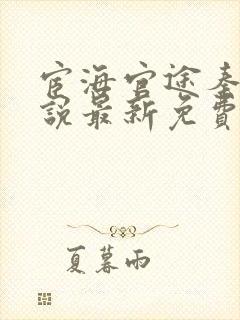 宦海官途秦
說最新免費
夏暮雨